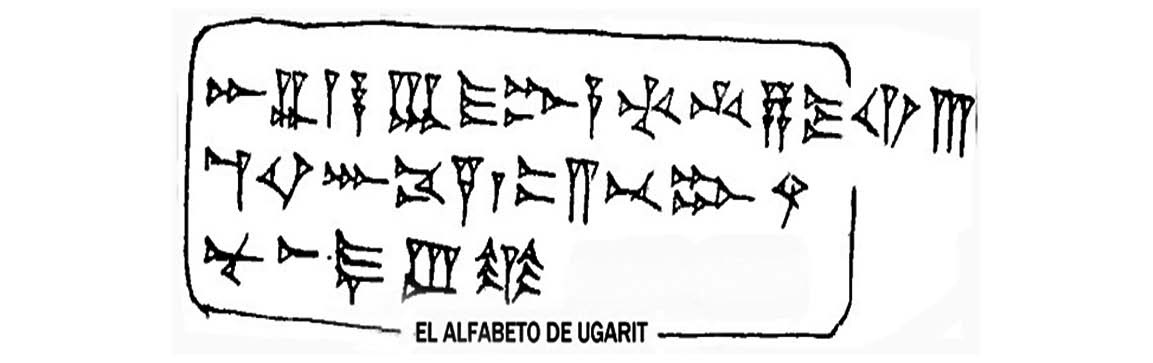 𐎀 𐎁 𐎂 𐎃 𐎄 𐎅 𐎆 𐎇 𐎈 𐎉 𐎊 𐎋 𐎌 𐎍
𐎎 𐎏 𐎐 𐎑 𐎒 𐎓 𐎔 𐎕 𐎖 𐎗 𐎘
𐎙 𐎚 𐎛 𐎜 𐎝
EL ALFABETO DE UGARIT